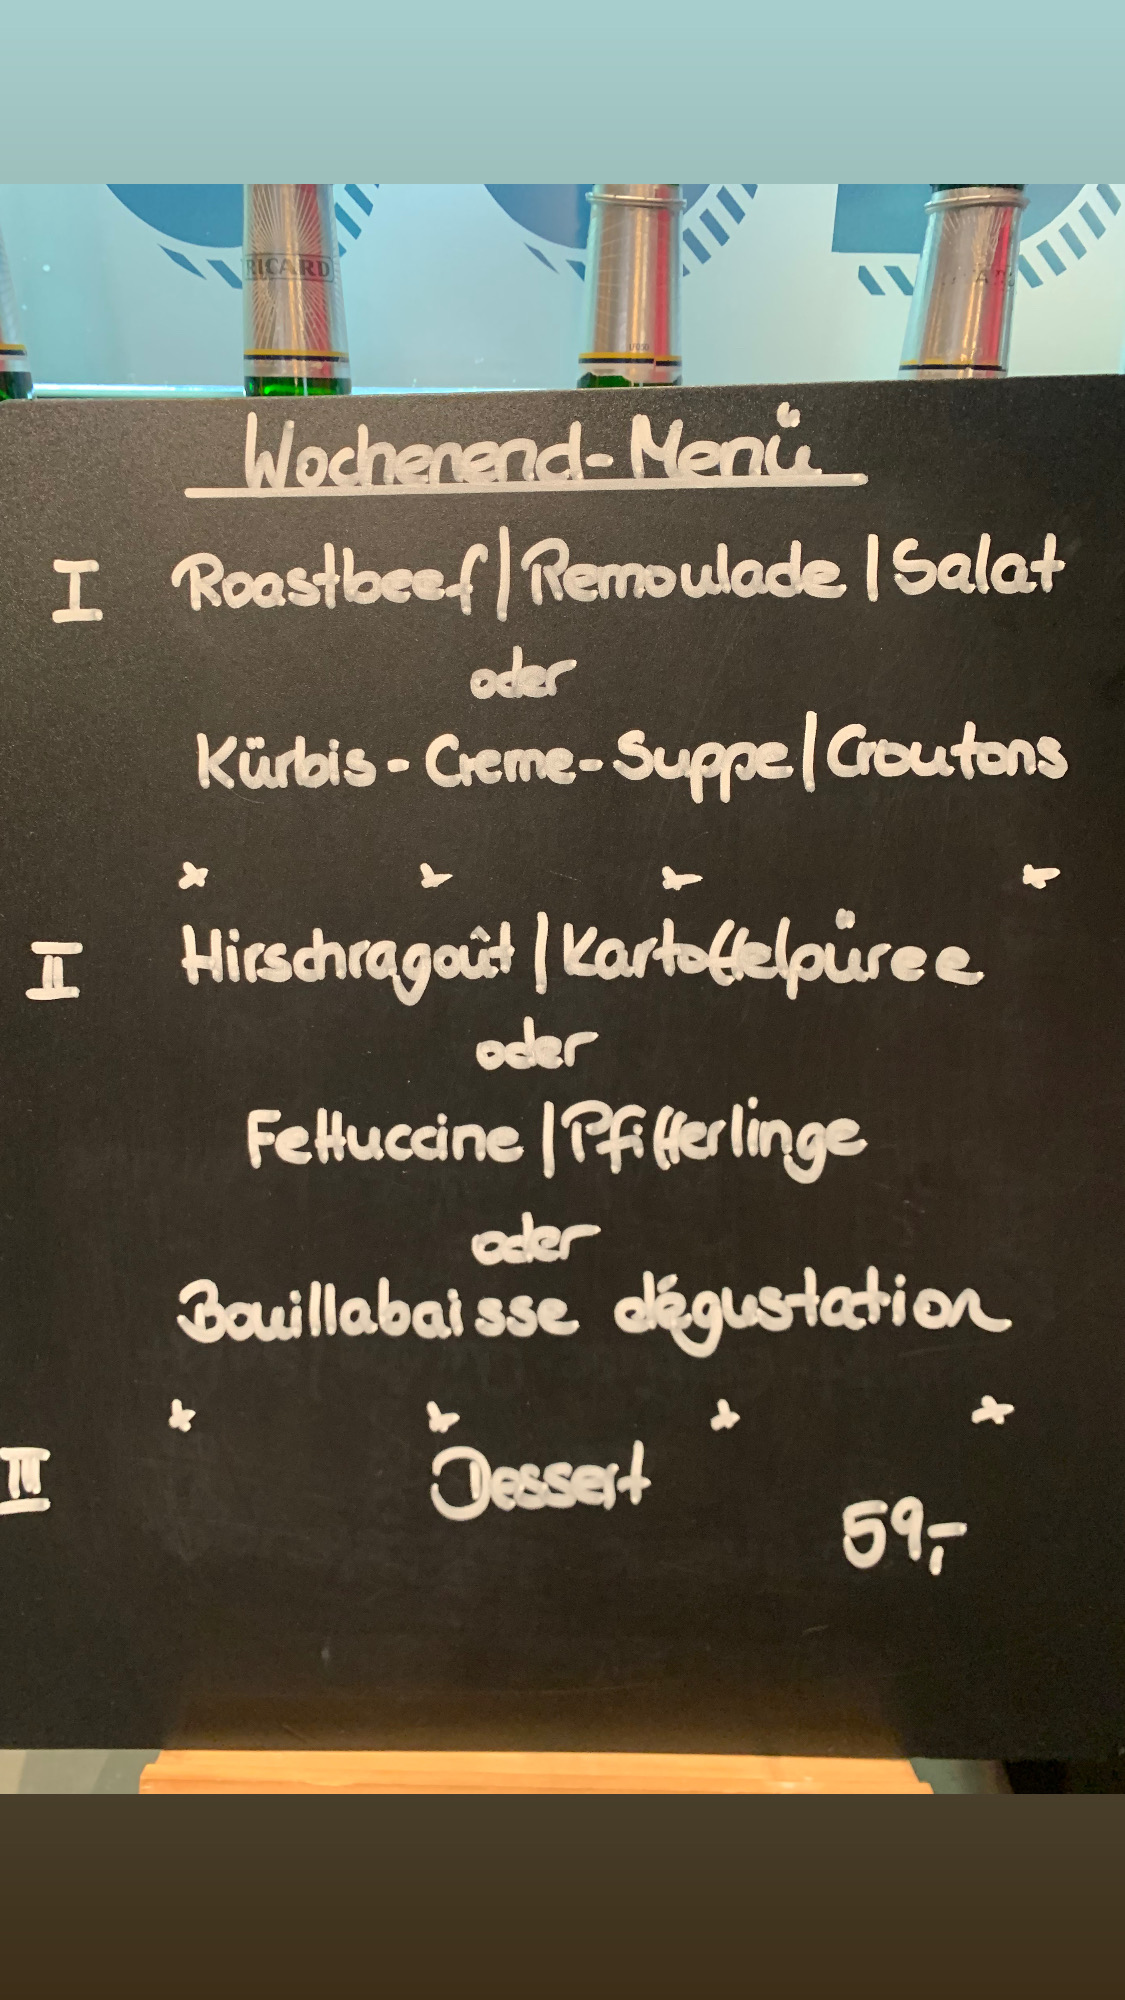 RICARD
Wochenend-Menü
I Roastbeef | Remoulade | Salat
oder
Kürbis-Creme-Suppe | Croutons
II Hirschragoût | Kartoffelpüree
oder
Fettuccine | Pfifferlinge
oder
Bouillabaisse dégustation
III Dessert
59,-